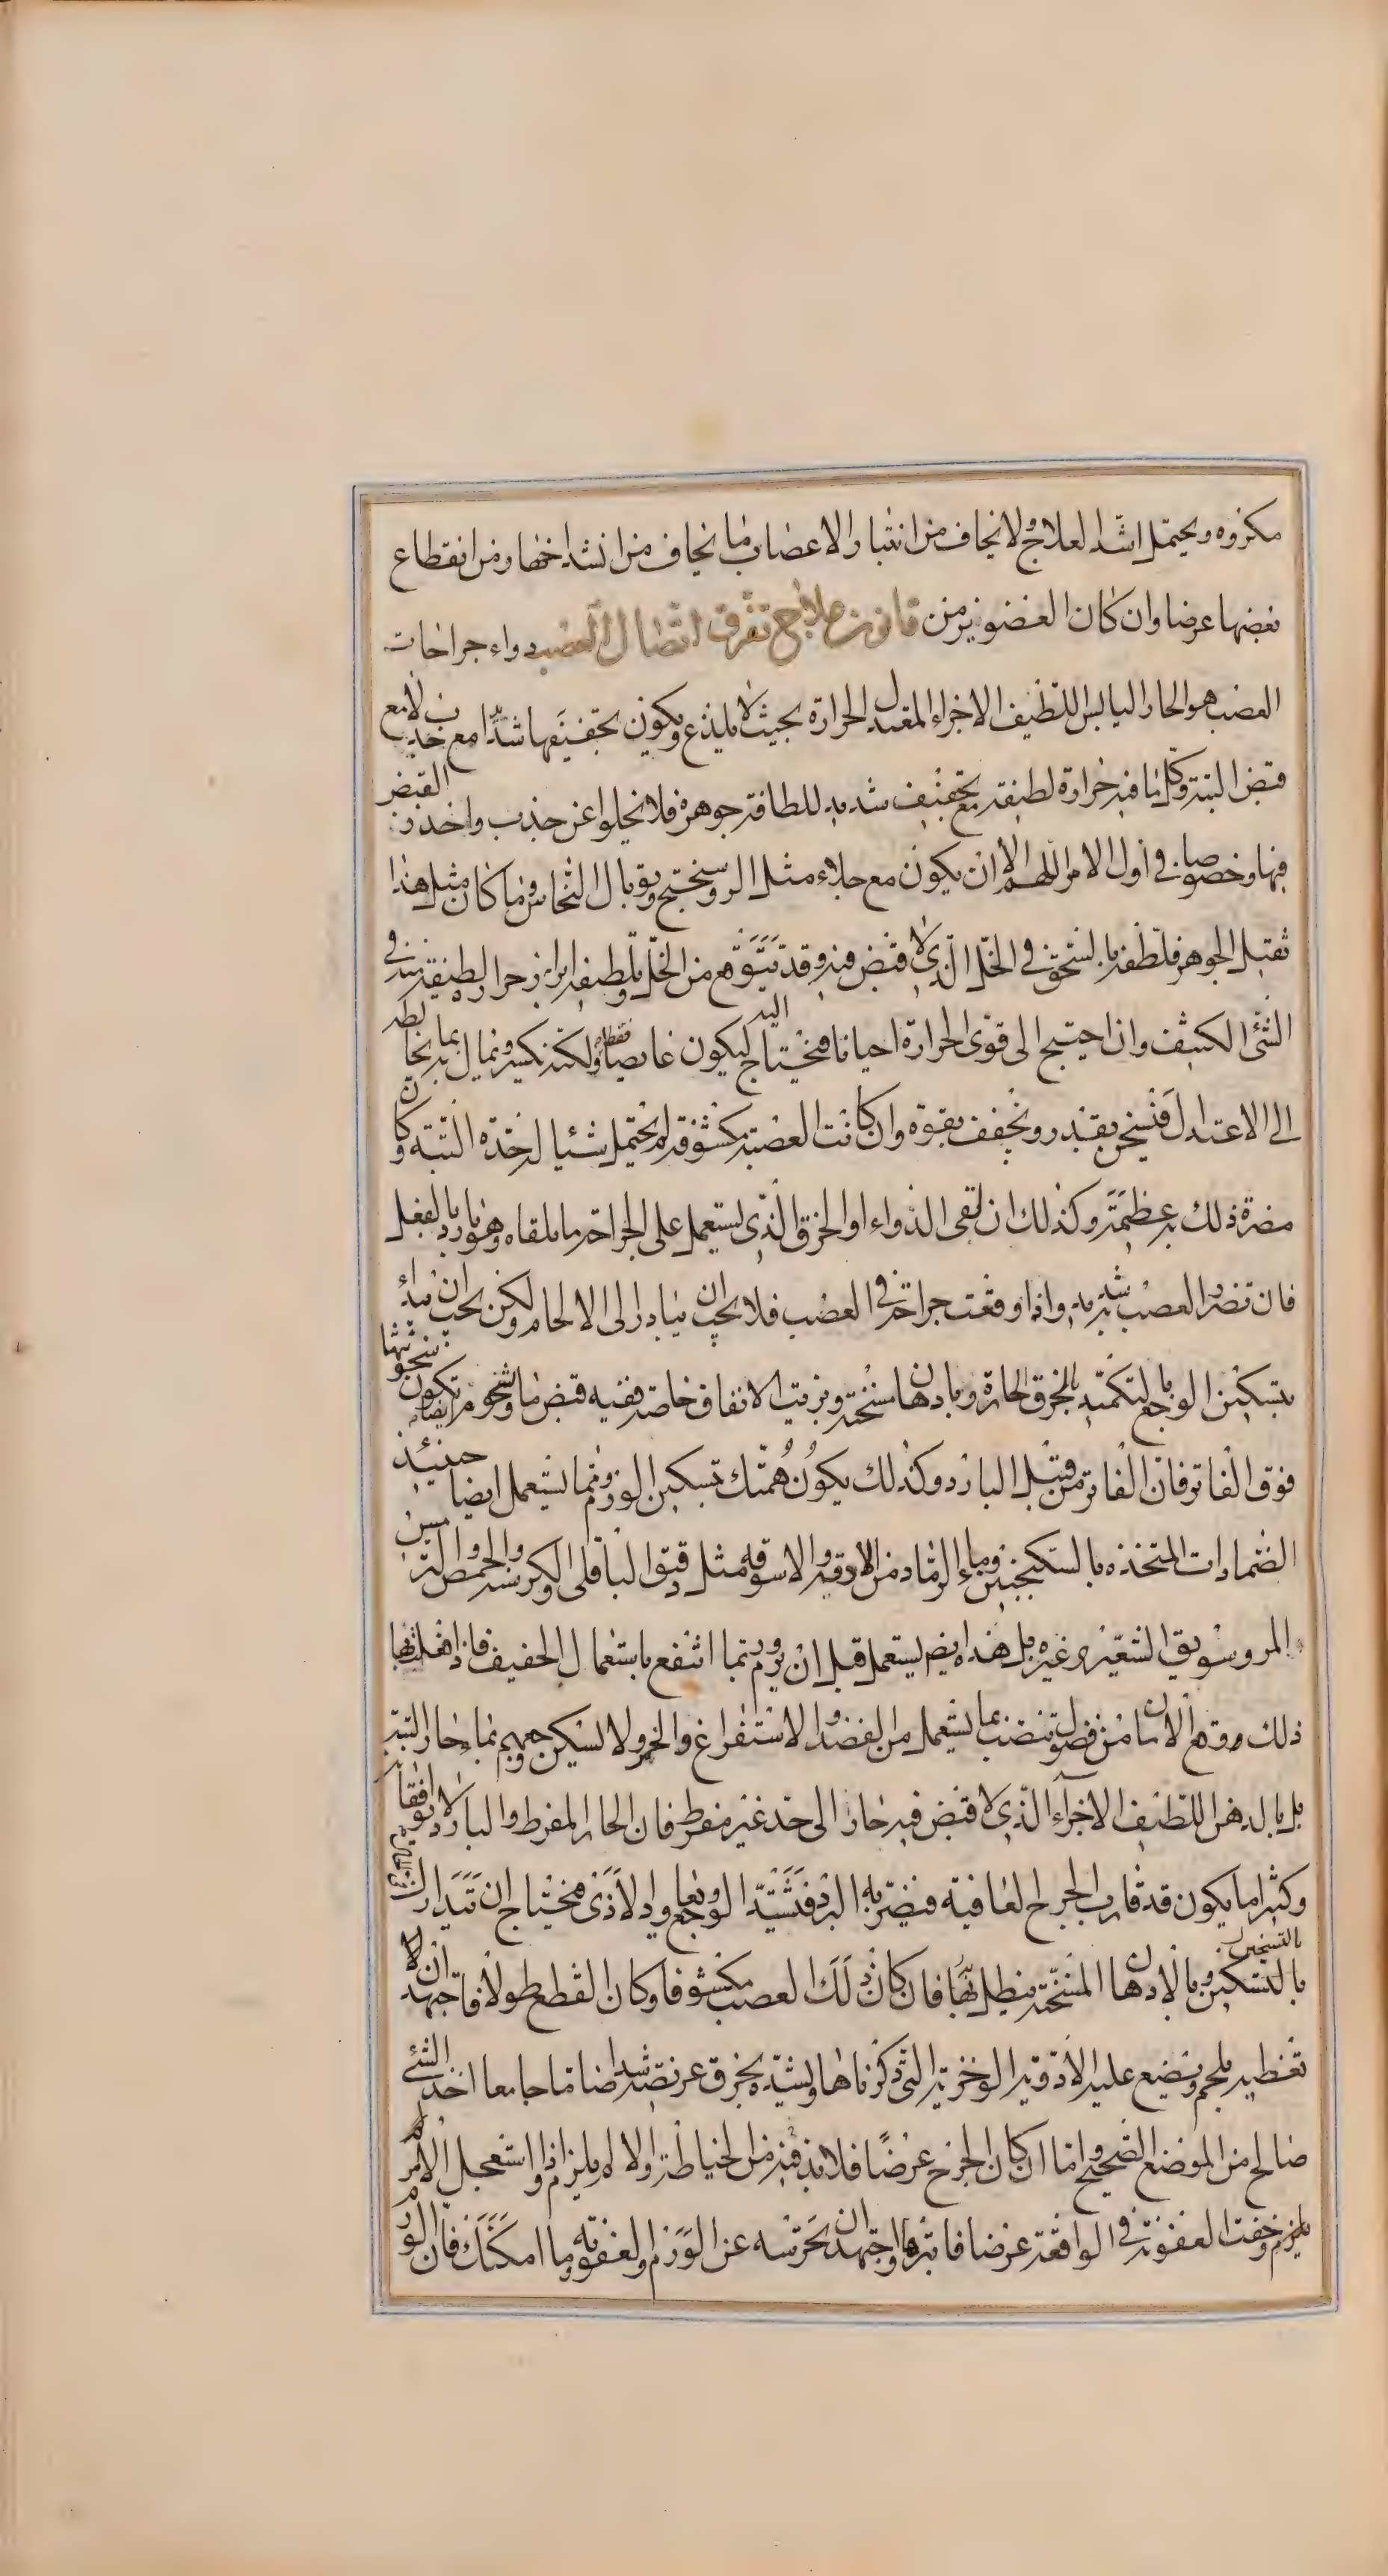 مكروه ويحتمل اشد العلاج ولا يخاف من انتبار الاعصاب ما يخاف من انشداخها ومن انقطاع
بعضها عرضا وان كان العضو يزمن قانون علاج تفرق اتصال العصب دواء جراحات
العصب هو الحار اليابس اللطيف الاجزاء المعتدل الحرارة بحيث لا يلذع ويكون تجفيفها شدا مع جذب لا مع
قبض البتة وكل ما فيه حرارة لطيفة مع تجفيف شديد للطافة جوهره فلا يخلوا عن جذب واحذر القبض
فيها وخصوصا في اول الامر اللهم الا ان يكون مع جلاء مثل الروسختج وتوبال النحاس وما كان مثل هذا
ثقيل الجوهر فلطفه بالسحق في الخل الذي لا قبض فيه وقد يتوهم من الخل وتلطيفه ابراز حرار لطيفة في
الشئ الكثيف وان احتيج الى قوى الحرارة احيانا فيحتاج اليه ليكون غايصا ولكنه نكسر ونمال بما يخالطه
الى الاعتدال فتسخن بقدر وتجفف بقوة وان كانت العصبة مكشوفة لم يحتمل شئيا له حدة البتة وكان
مضرة ذلك به عظيمة وكذلك ان لقى الدواء او الخرق الذي يستعمل على الجراحة ما يلقاه وهو بارد بالفعل
فان تضرر العصب به شديد واذا وقعت جراحة في العصب فلا يجب ان يبادر الى الالحام ولكن يجب ان يبدأ
بتسكين الوجع بالتكميد بالخرق الحارة وبادهان مسخنة وبزيت الانفاق خاصة ففيه قبض ما وسخونتها تكون ايضا
فوق الفاتر فان الفاتر من قبيل البارد وكذلك يكون همتك تسكين الورم ومما يستعمل ايضا حينئذ
الضمادات المتخذه بالسكنجبين وماء الرماد من الادقة والاسوقة مثل دقيق الباقلى والكرسنة والحمص والترمس
المر وسويق الشعير وغيره بل هذا ايضا يستعمل قبل ان يورم وربما انتفع باستعمال الخفيف فاذا فعلت
ذلك ووقع الامان من فضول تنصب بما يستعمل من الفصد والاستفراغ والخمر ولا لسكن وجعهم بماء حار البتة
بل بالدهن اللطيف الاجزاء الذي لا قبض فيه حار الى حد غير مفرط فان الحار المفرط والبارد لا يوافقانه
وكثيرا ما يكون قد قارب الجرح العافية فيضر به البرد فتشتد الوجع ويعاود الاذى فيحتاج ان يتدارك
بالتسخين بالتسكين وبالادهان المسخنة ينطل بها فان كان ذلك العصب مكشوفا وكان القطع طولا فاجتهد ان لا
تغطيه بلحم ونضع عليه الادوية اللوخرية التي ذكرناها ويشده بخرق عريضة شدا ضاما جامعا اخذ الشئ
صالح من الموضع الصحيح واما ان كان الجرح عرضا فلا بد فيه من الخياطة والا لم يلزم واذا استعجل الامر
يلزم وخفت العفونة في الواقعة عرضا فابترها واجتهد ان تحرسه عن الورم والعفونة ما امكنك فان الور